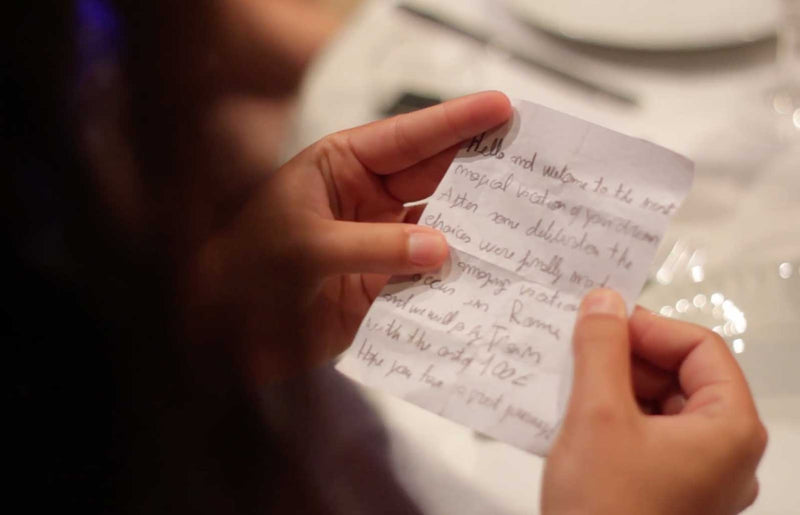 Hello and welcome to the most
magical vacation of your dream
After some deliberation the
choices were finally made
amazing vacation
occur in Roma
and we will go by Train
with the cost of 100€
Hope you have a great